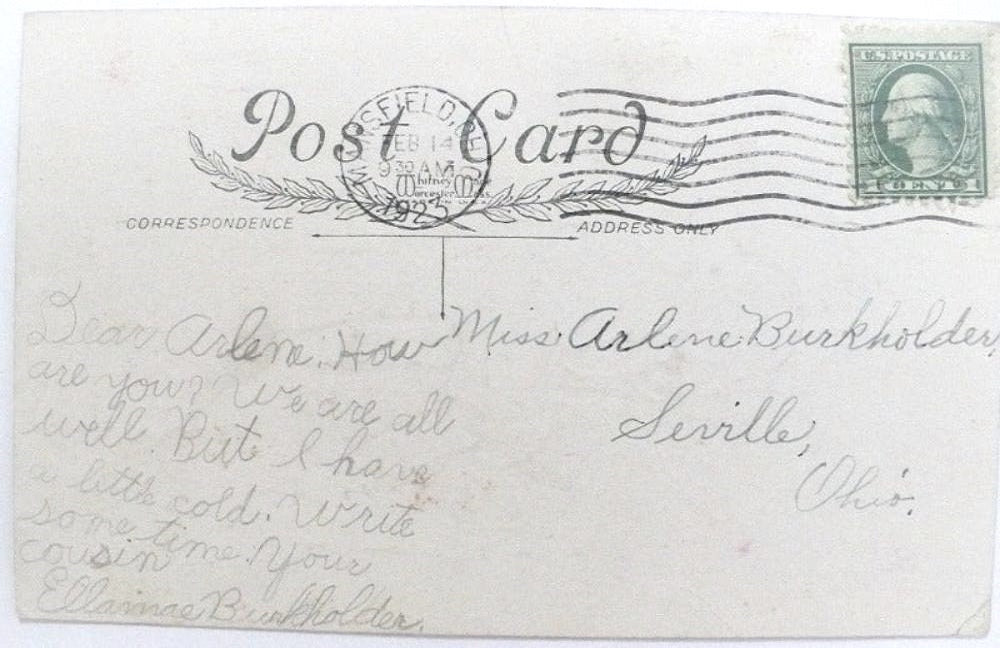 U.S. POSTAGE
1 CENT 1
Post Card
MANSFIELD, OHIO
FEB 14
9 30 AM
1923
Whitney Made
Worcester Mass.
CORRESPONDENCE
ADDRESS ONLY
Dear Arlene. How
are you? We are all
well. But I have
a little cold. Write
some time. Your
cousin
Ellamae Burkholder.
Miss Arlene Burkholder,
Seville,
Ohio.